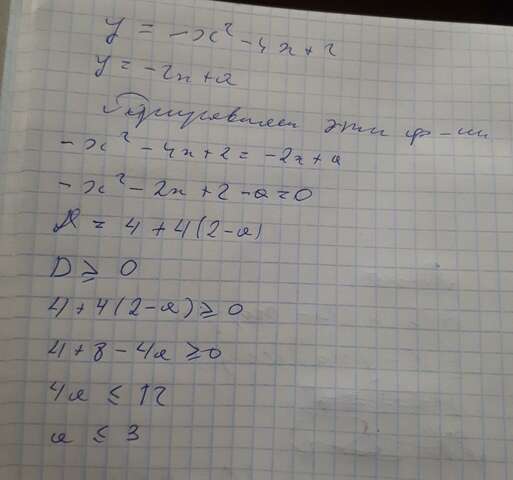 y = -x² - 4x + 2
y = -2x + a
Приравняем эти ф-ии
-x² - 4x + 2 = -2x + a
-x² - 2x + 2 - a = 0
D = 4 + 4(2-a)
D ≥ 0
4 + 4(2-a) ≥ 0
4 + 8 - 4a ≥ 0
4a ≤ 12
a ≤ 3